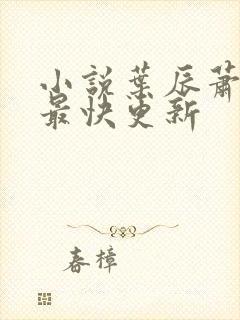 小說葉辰蕭
最快更新
春樟